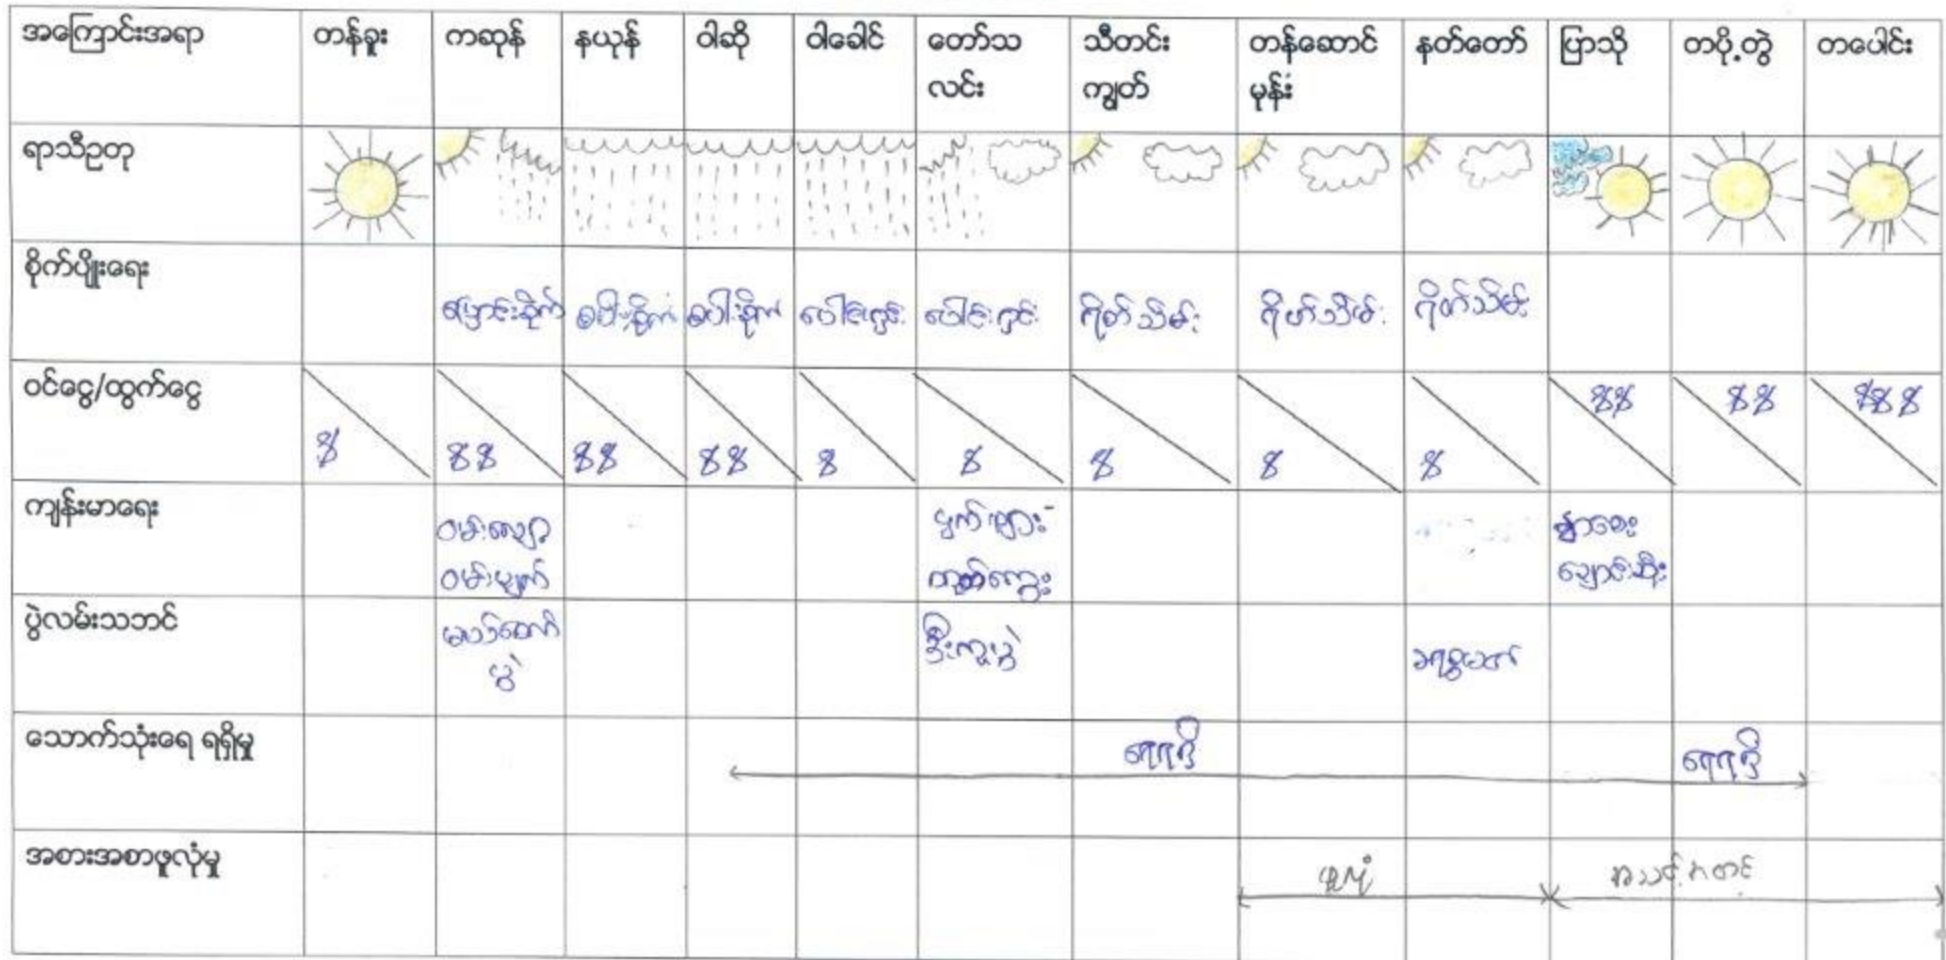 အကြောင်းအရာ တန်ခူး ကဆုန် နယုန် ဝါဆို ဝါခေါင် တော်သလင်း သီတင်းကျွတ် တန်ဆောင်မုန်း နတ်တော် ပြာသို တပို့တွဲ တပေါင်း
ရာသီဥတု
စိုက်ပျိုးရေး ပြောင်းစိုက် စပါးစိုက် စပါးစိုက် ပေါင်းရှင်း ပေါင်းရှင်း ရိတ်သိမ်း ရိတ်သိမ်း ရိတ်သိမ်း
ဝင်ငွေ/ထွက်ငွေ
$ $$ $$ $$ $ $ $ $ $ $$ $$ $$$
ကျန်းမာရေး ဝမ်းလျှော ဝမ်းပျက် ငှက်ဖျား နှာစေး ချောင်းဆိုး
ပွဲလမ်းသဘင် ခရစ္စမတ်
သောက်သုံးရေ ရရှိမှု ရေရရှိ ရေရရှိ
အစားအစာဖူလုံမှု ဖူလုံ အသင့်အတင့်